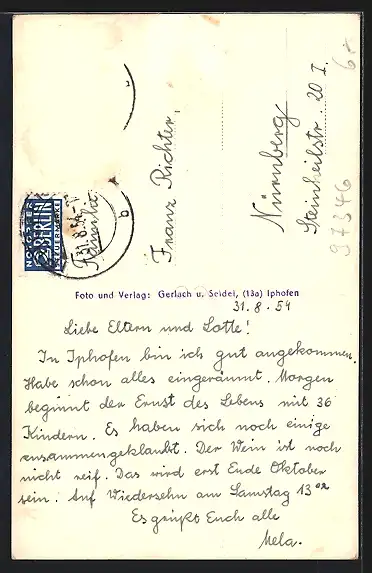 Familie
Franz Richter,
Nürnberg
Steinheilstr. 20 I.
6.-
97346
NOTOPFER
2 BERLIN
STEUERMARKE
31.8.54
b
Foto und Verlag: Gerlach u. Seidel, (13a) Iphofen
31.8.54
Liebe Eltern und Lotte!
In Iphofen bin ich gut angekommen.
Habe schon alles eingeräumt. Morgen
beginnt der Ernst des Lebens mit 36
Kindern. Es haben sich noch einige
zusammengeklaubt. Der Wein ist noch
nicht reif. Das wird erst Ende Oktober
sein. Auf Wiedersehn am Samstag 13⁰²
Es grüßt Euch alle
Mela.